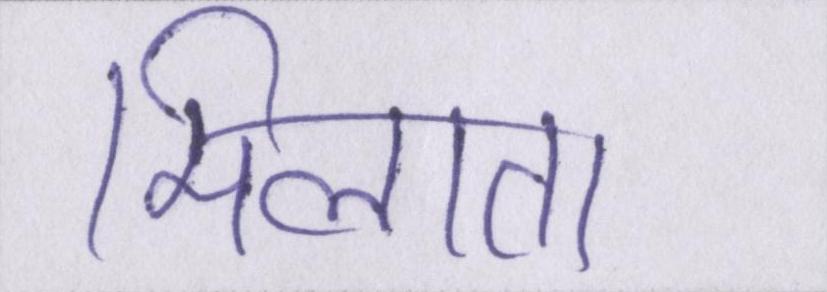 मिलाता